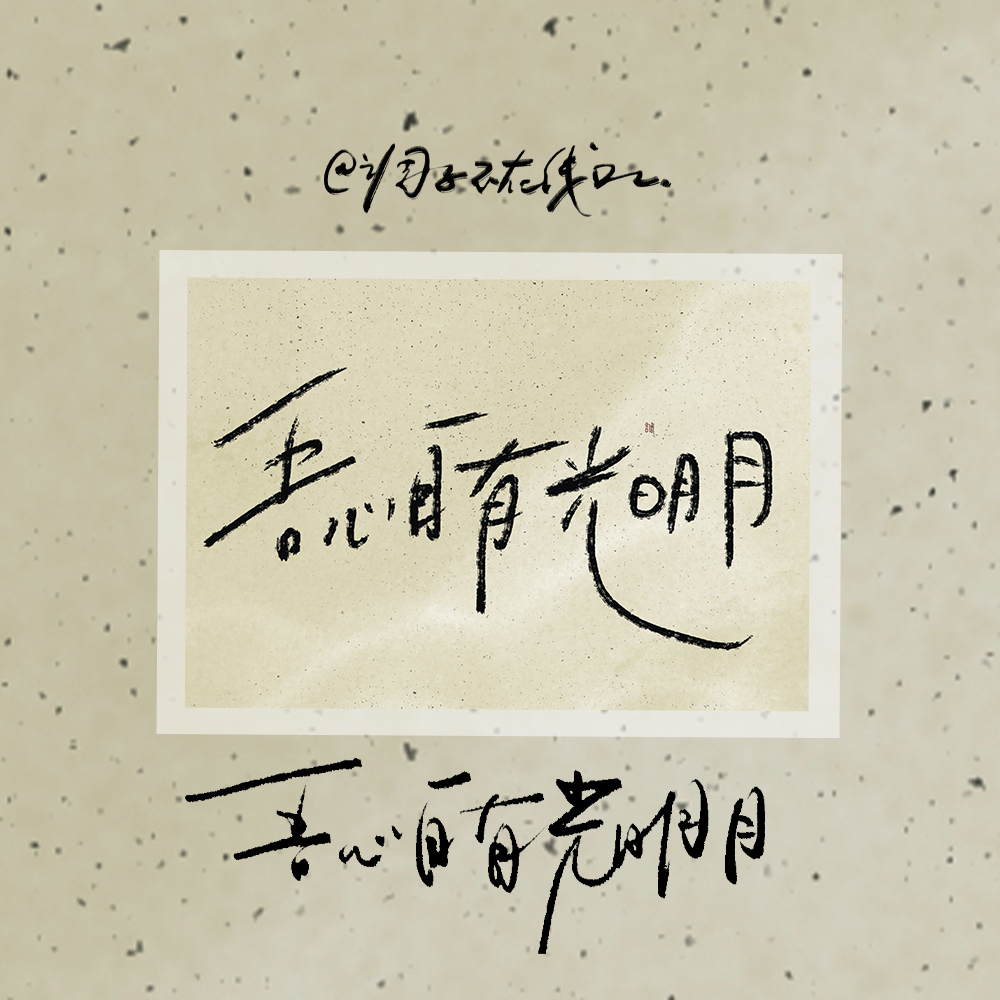 吾心自有光明月
吾心自有光明月